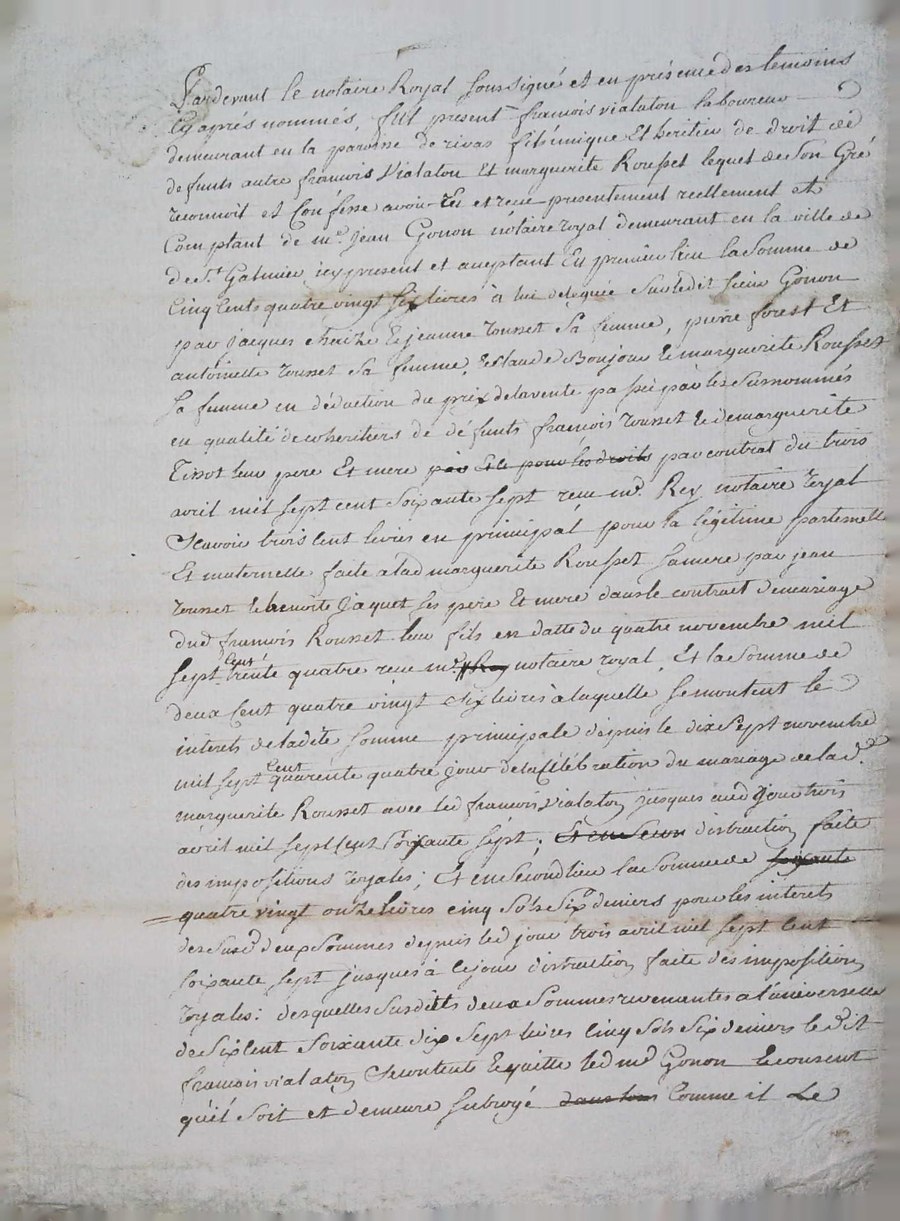 Pardevant le notaire Royal soussigné et en présence des temoins
Cy aprés nommés, fut present françois vialaton laboureur
demeurant en la paroisse de rivas fils unique Et heritier de droit de
defunts autre francois Vialaton Et marguerite Rousset lequel de Son Gré
reconnoit et Confesse avoir Eu et receu presentement reellement et
Comptant de me. Jean Gonon notaire royal demeurant en la ville de
de St. Galmier icy present et aceptant En premier lieu la Somme de
Cinq Cents quatre vingt six livres à lui deleguée Sur ledit sieur Gonon
par Jacques chaize & jeanne rousset Sa femme, pierre forest Et
antoinette rousset Sa femme, & Claude Boujou & marguerite Rousset
sa femme en déduction du prix de la vente passée par les Susnommés
en qualité de coheritiers de défunts francois rousset & de marguerite
Tissot leur pere Et mere par Et le pour les droits par contrat du trois
avril mil sept cent soixante sept receu me. Rey notaire royal
Scavoir trois cent livres en principal pour la légitime paternelle
Et maternelle faite a lad marguerite Rousset Sa mere par jean
rousset & benoite Jaquet ses pere Et mere dans le contrat de mariage
dud francois Rousset leur fils en datte du quatre novembre mil
sept cent trente quatre receu me. Rey notaire royal, Et la Somme de
deux Cent quatre vingt six livres à laquelle se montent le
interets de ladite somme principale depuis le dix sept novembre
mil sept Cent quarente quatre jour de la Célébration du mariage de lad.
marguerite Rousset avec led francois vialaton jusques aud Jour trois
avril mil sept cent soixante sept; Et en Secon distraction faite
des impositions royales; Et en Second lieu la Somme de soixante
quatre vingt onze livres cinq sols six deniers pour les interets
des susd. deux Sommes depuis led jour trois avril mil sept Cent
soixante sept jusques à ce jour distraction faite des imposition
royales: desquelles Susdittes deux Sommes revenantes a l'universelle
de Six Cent Soixante dix sept livres Cinq Sols Six deniers le dit
francois vialaton Se contente & quitte led me Gonon & consent
qu'il Soit et demeure subrogé dans tous Comme il Le